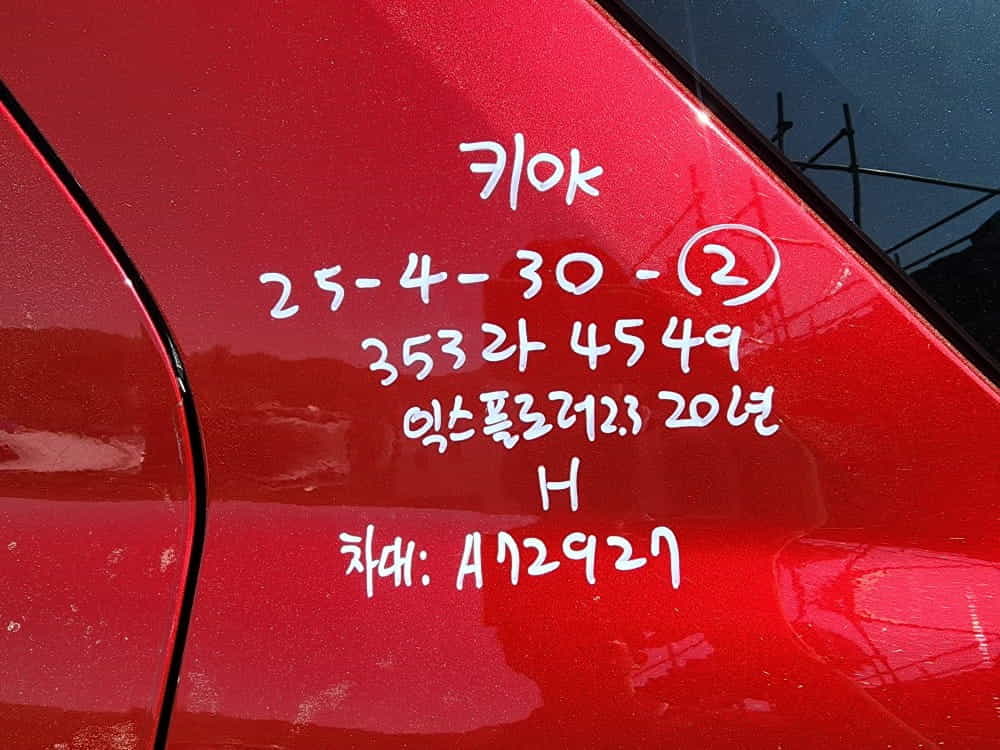 키OK
25-4-30-②
353라4549
익스플로러2.3 20년
H
차대: A72927